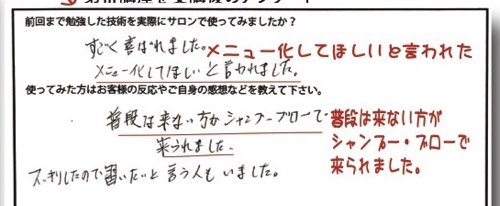 前回まで勉強した技術を実際にサロンで使ってみましたか？
すごく喜ばれました。メニュー化してほしいと言われた
メニュー化してほしいと言われました。
使ってみた方はお客様の反応やご自身の感想などを教えて下さい。
普段は来ない方がシャンプーブローで
来られました。
普段は来ない方が
シャンプー・ブローで
来られました。
スッキリしたので
と言う人もいました。